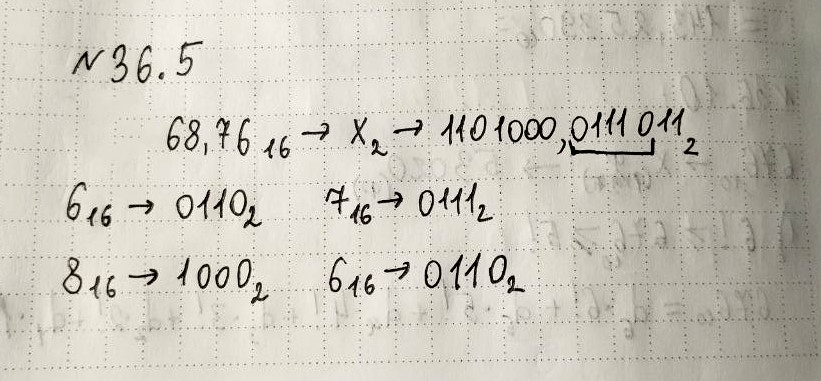 № 36.5
68,76₁₆ → X₂ → 1101000,0111011₂
6₁₆ → 0110₂ 7₁₆ → 0111₂
8₁₆ → 1000₂ 6₁₆ → 0110₂